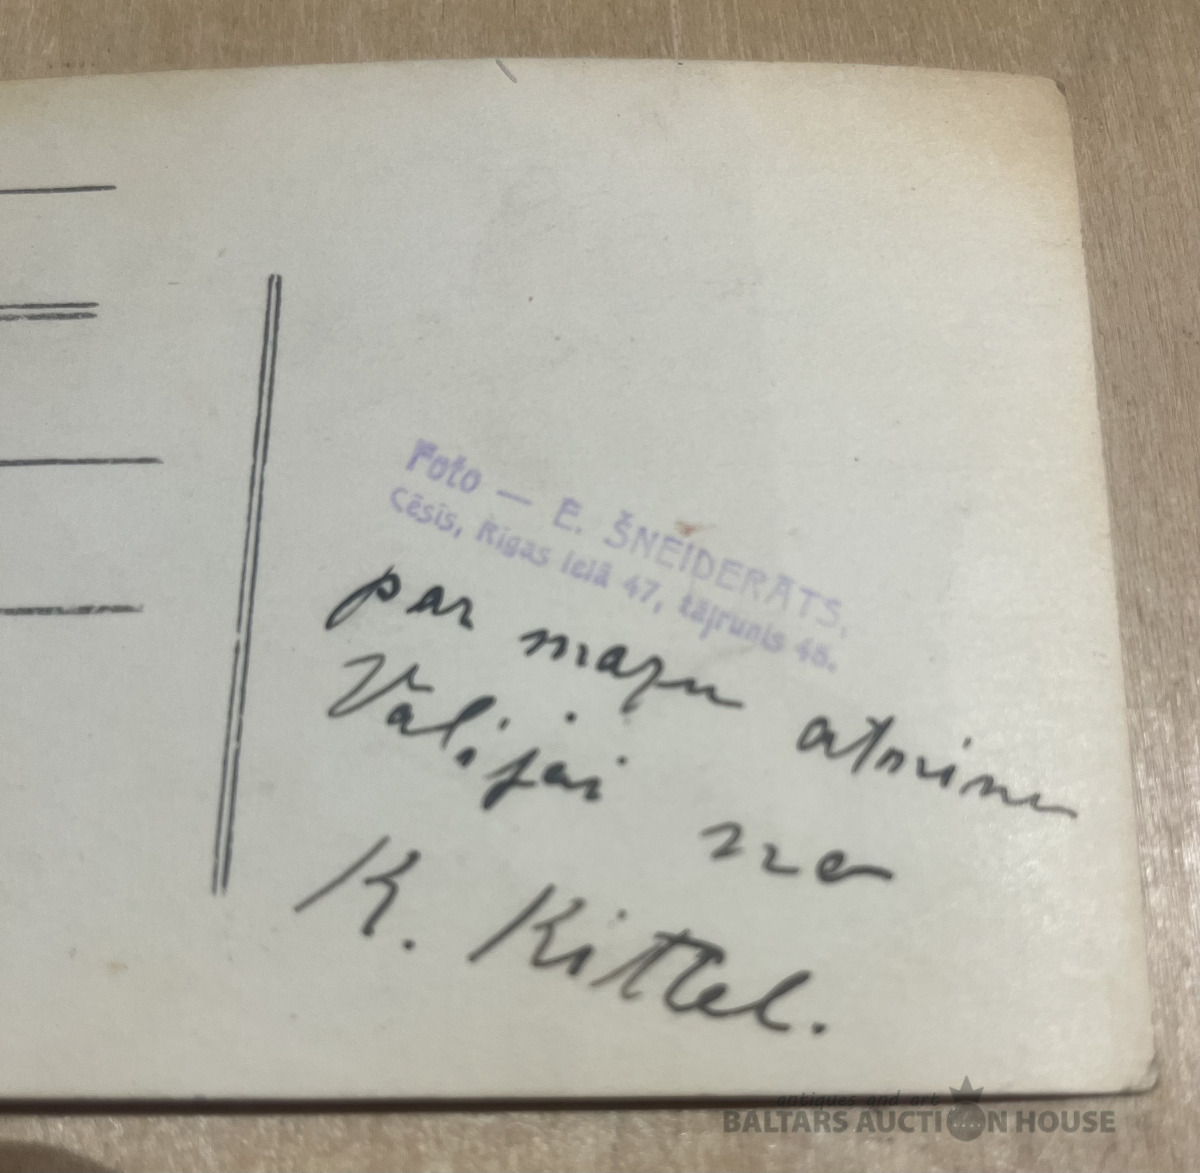 Foto — E. ŠNEIDERATS,
Cēsis, Rīgas ielā 47, tājrunis 46.
par mazu atmiņu
Valijai no
K. Kittel.
antiques and art
BALTARS AUCTION HOUSE